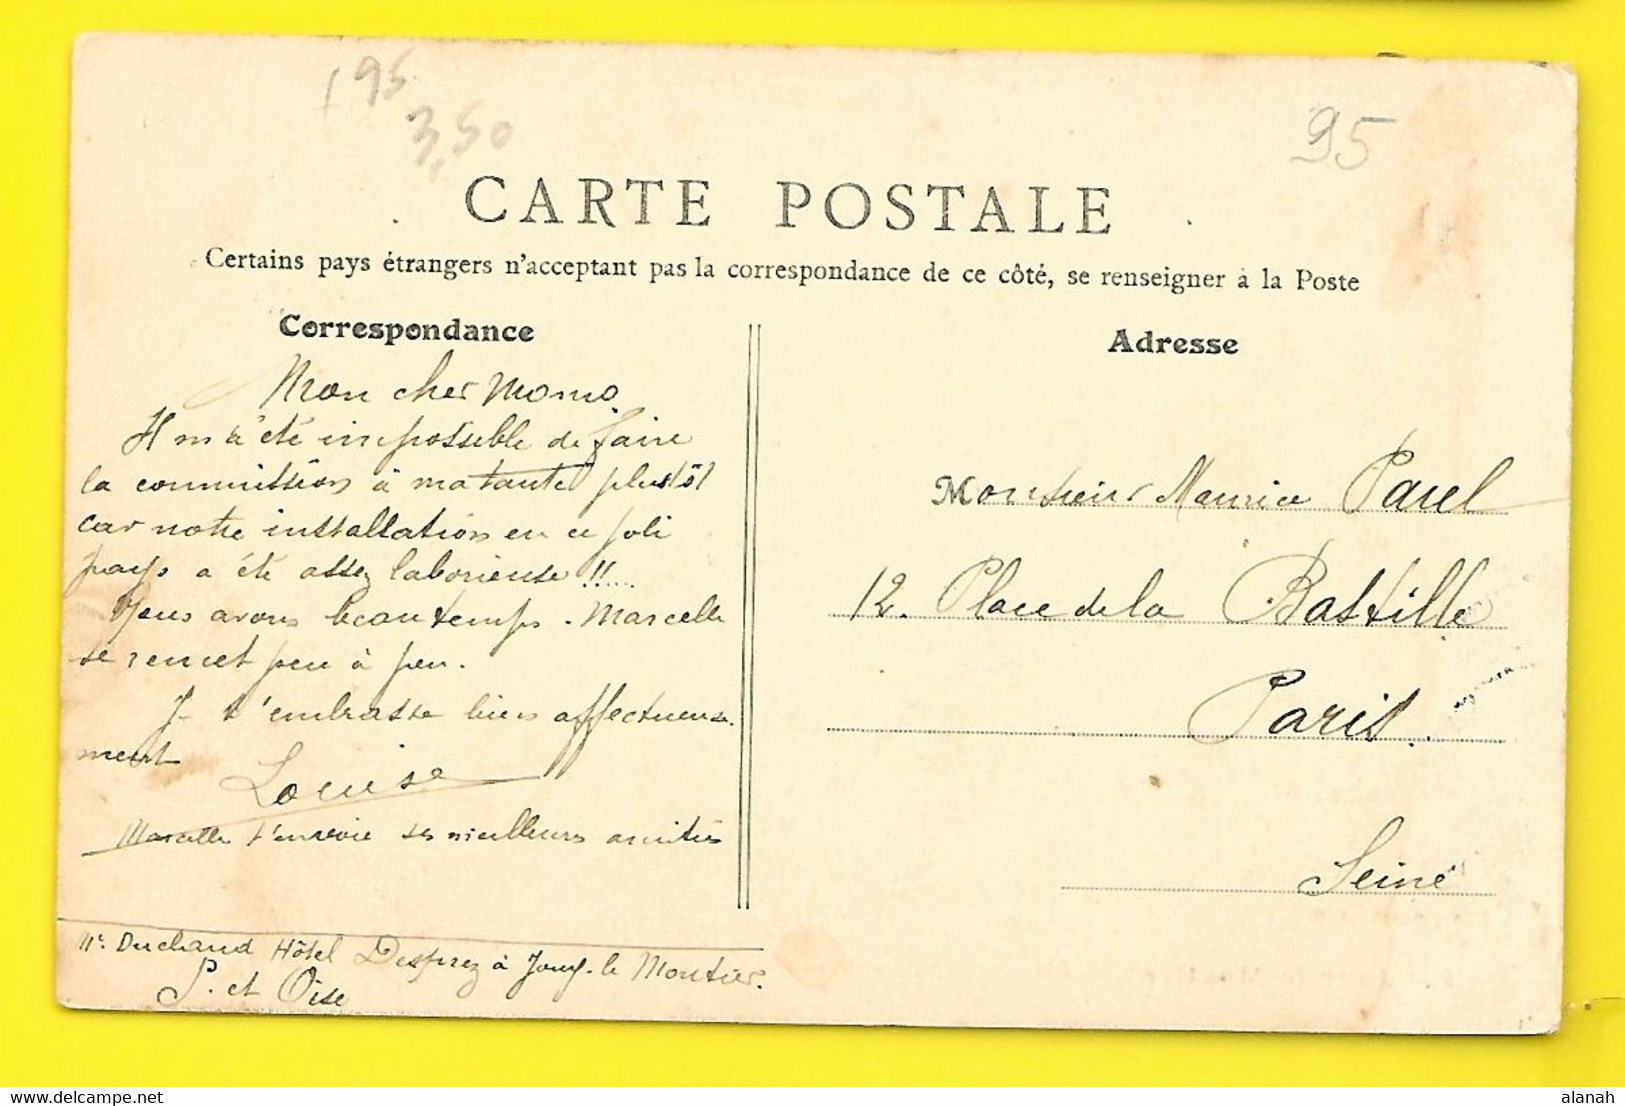 195
3,50
95
CARTE POSTALE
Certains pays étrangers n'acceptant pas la correspondance de ce côté, se renseigner à la Poste
Correspondance
Adresse
Mon cher Momo
Il m'a été impossible de faire
la commission à ma tante plustôt
car notre installation en ce joli
pays a été assez laborieuse !!....
Nous avons beau temps. Marcelle
se remet peu à peu.
Je t'embrasse bien affectueuse-
ment
Louise
Marcelle t'envoie ses meilleurs amitiés
Duchaud Hôtel Desprez à Jouy-le Moutier.
S. et Oise
Monsieur Maurice Parel
12. Place de la Bastille
Paris.
Seine
alanah
delcampe.net